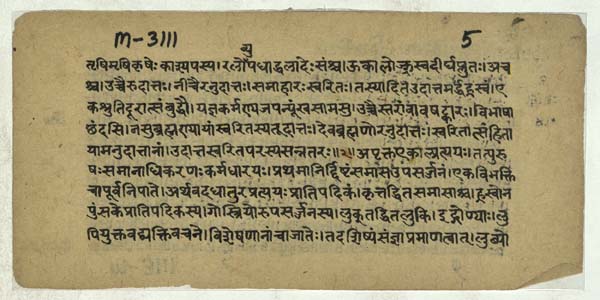 M-3111 5
यु
तृषिमृषिकृषेः काश्यपस्य। रलोव्युपधाद्धलादेः संश्च। ऊकालोज्झ्रस्वदीर्घप्लुतः। अच
श्च। उच्चैरुदात्तः। नीचैरनुदात्तः। समाहारः स्वरितः। तस्यादित उदात्तमर्द्धह्रस्वं। ए
कश्रुतिदूरात्संबुद्धौ। यज्ञकर्मण्यजपन्यूंखसामसु। उच्चैस्तरांवावषट्कारः। विभाषा
छंदसि। नसुब्रह्मण्यायांस्वरितस्यतूदात्तः। देवब्रह्मणोरनुदात्तः। स्वरितात्संहिता
यामनुदात्तानां। उदात्तस्वरितपरस्यसन्नतरः॥ अपृक्तएकाल्प्रत्ययः। तत्पुरु
षःसमानाधिकरणःकर्मधारयः। प्रथमानिर्दिष्टंसमासउपसर्जनं। एकविभक्ति
चापूर्वनिपाते। अर्थवदधातुरप्रत्ययःप्रातिपदिकं। कृत्तद्धितसमासाश्च। ह्रस्वोन
पुंसकेप्रातिपदिकस्य। गोस्त्रियोरुपसर्जनस्य। लुक्तद्धितलुकि। इद्गोण्याः। लु
पियुक्तवद्व्यक्तिवचने। विशेषणानांचाजातेः। तदशिष्यंसंज्ञाप्रमाणत्वात्। लुब्यो